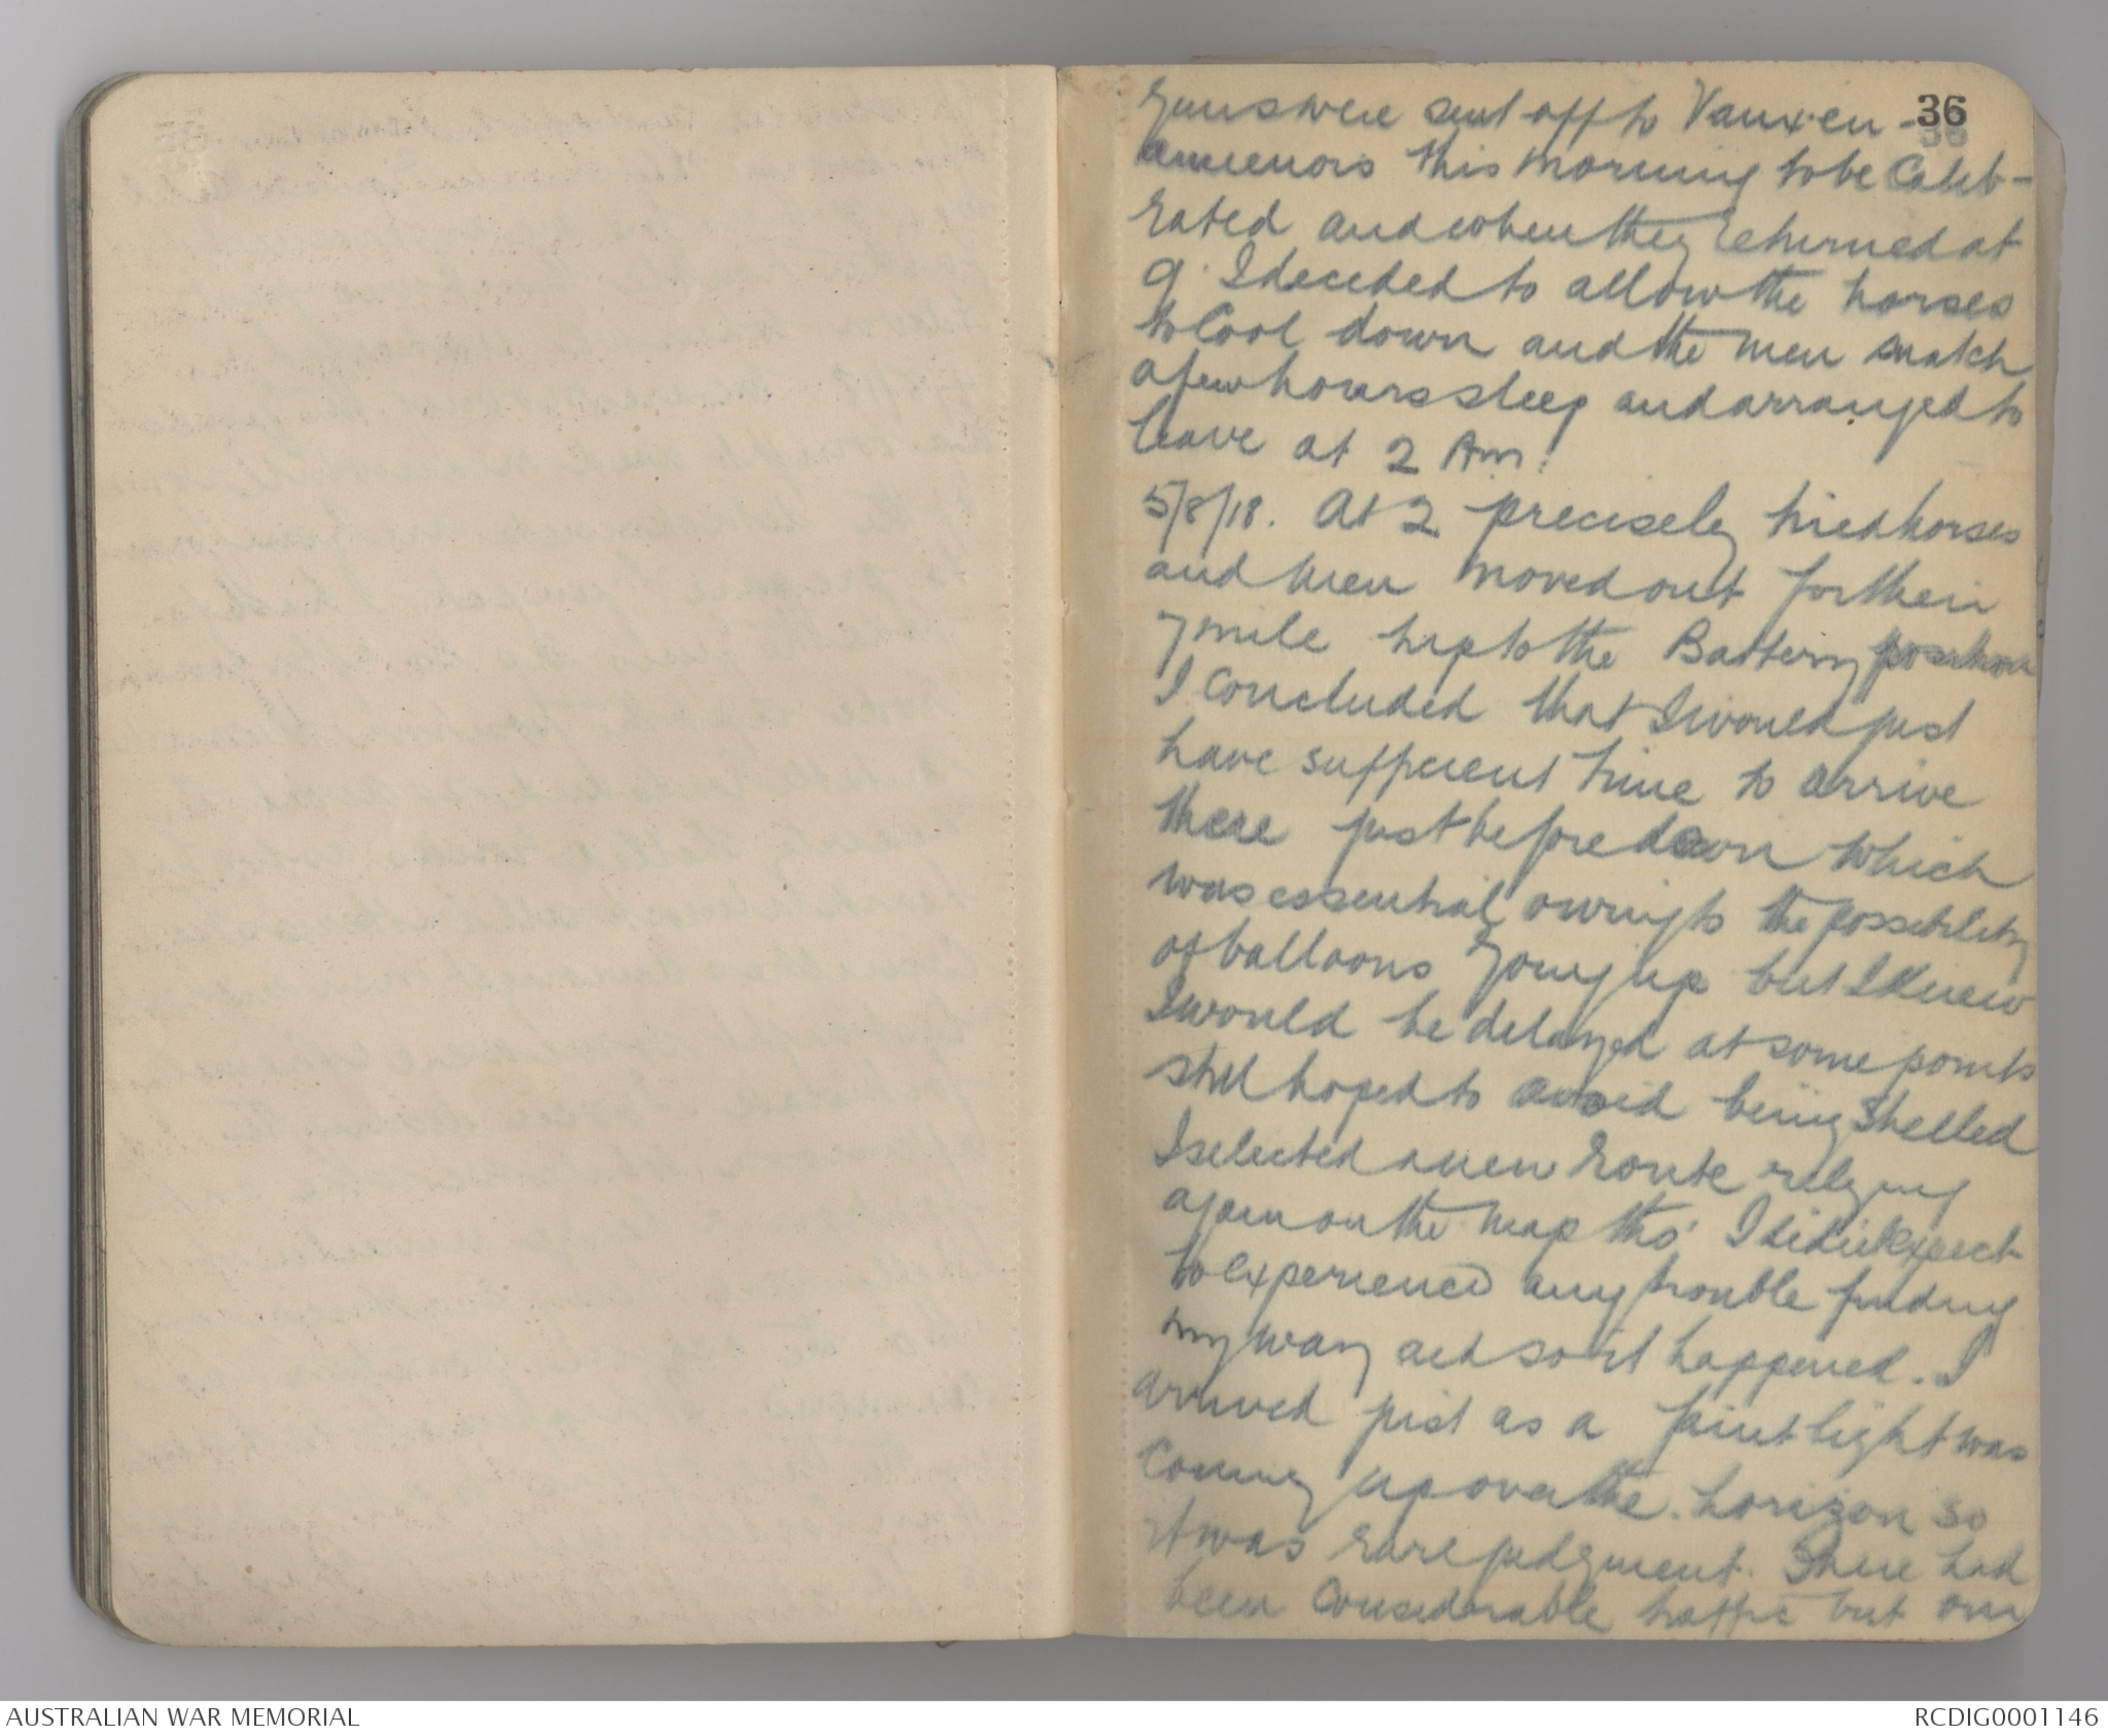 36
guns were sent off to Vaux-en-
amienois this morning to be Calib-
rated and when they returned at
9. I decided to allow the horses
to Cool down and the men snatch
a few hours sleep and arranged to
leave at 2 Am.
5/8/18. At 2 precisely tired horses
and men moved out for their
7 mile trip to the Battery position
I concluded that I would just
have sufficient time to arrive
there just before dawn which
was essential owing to the possibility
of balloons going up but I knew
I would be delayed at some points
still hoped to avoid being Shelled
I selected a new route relying
again on the map tho' I didn't expect
to experience any trouble finding
my way and so it happened. I
arrived just as a faint light was
Coming up over the horizon so
it was rare judgment. There had
been Considerable traffic but our
AUSTRALIAN WAR MEMORIAL
RCDIG0001146